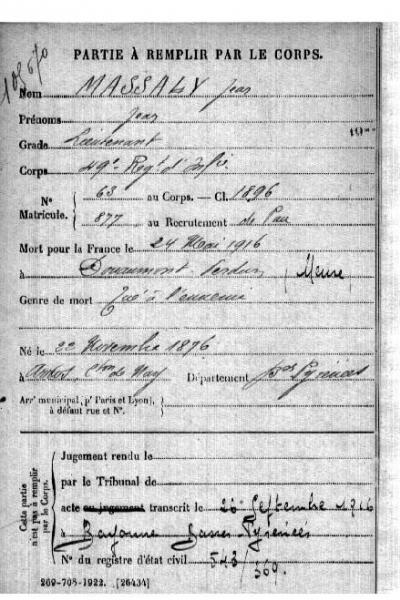 105670
PARTIE À REMPLIR PAR LE CORPS.
Nom MASSALY Jean
Prénoms Jean
Grade Lieutenant
Corps 49e Regt d'Infie
N° Matricule. 63 au Corps. — Cl. 1896
877 au Recrutement de Pau
Mort pour la France le 24 Mai 1916
à Douaumont Verdun (Meuse)
Genre de mort Tué à l'ennemi
Né le 22 Novembre 1876
à de Nay Département Bses Pyrénées
Arrt municipal (pr Paris et Lyon),
à défaut rue et N°.
Cette partie n'est pas à remplir par le Corps.
Jugement rendu le
par le Tribunal de
acte ou jugement transcrit le 26 Septembre 1916
à Bayonne Basses Pyrénées
N° du registre d'état civil 543/369.
269-708-1922. [26434]